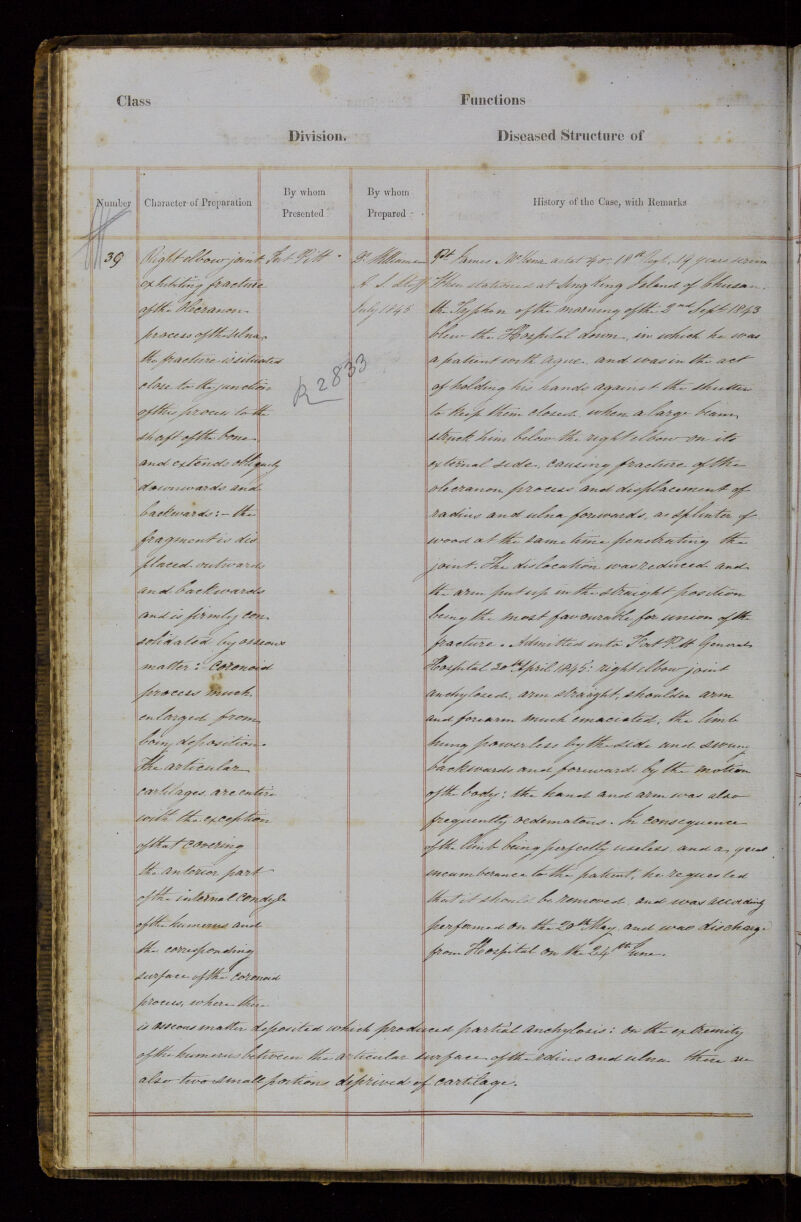 Class
Functions
Division.
Diseased Structure of
Number
Character of Preparation
By whom
Presented
By whom
Prepared
History of the Case, with Remarks
39
Right elbow joint
exhibiting fracture
of the Olecranon
process of the Ulna
the fracture is situated
close to the junction
of this process to the
shaft of the bone
and extends obliquely
downwards and
backwards :- the
fragment is dis
placed outwards
and backwards
and is firmly con
solidated by osseous
matter : Coronoid
process much
enlarged from
bony deposition.
The articular
cartilages are entire
with the exception
of that covering
the anterior part
of the internal condyle
of the humerus and
the corresponding
surface of the coronoid
process, where there
is osseous matter deposited which produced partial anchylosis : on the extremity
of the humerus between the articular surface of the rdius and ulna there are
also two small portions deprived of cartilage.
Fort Pitt
R 2833
Dr
A. S. Staff
July 1845
Pt James aetat 40. 18th Regt. 19 years
Then stationed at Island of Chusan.
the Typhon of the morning of the 2nd Sept 1843
blew the Hospital down, in which he was
a patient with ague and was in the act
of holding his hands against the shutter
to keep them closed, when a large beam
struck him below the right elbow on its
external side, causing fracture of the
olecranon process and displacement of
radius and ulna forwards, a splinter of
wood at the same time penetrating the
joint. The dislocation was reduced and
the arm put up in the straight position
being the most favourable for union of the
fracture. Admitted into Fort Pitt General
Hospital 30th April 1845 : right elbow joint
anchylosed, arm straight, shoulder arm
and forearm much emaciated, the limb
hung powerless by the side and swung
backwards and forwards by the motion
of the body : the hand and arm was also
frequently oedematous. In consequence
of the limb being perfectly useless and a great
incumberance to the patient, he requested
that it should be removed, and was
performed on the 20th May and was discharged
from Hospital on the 24th June.